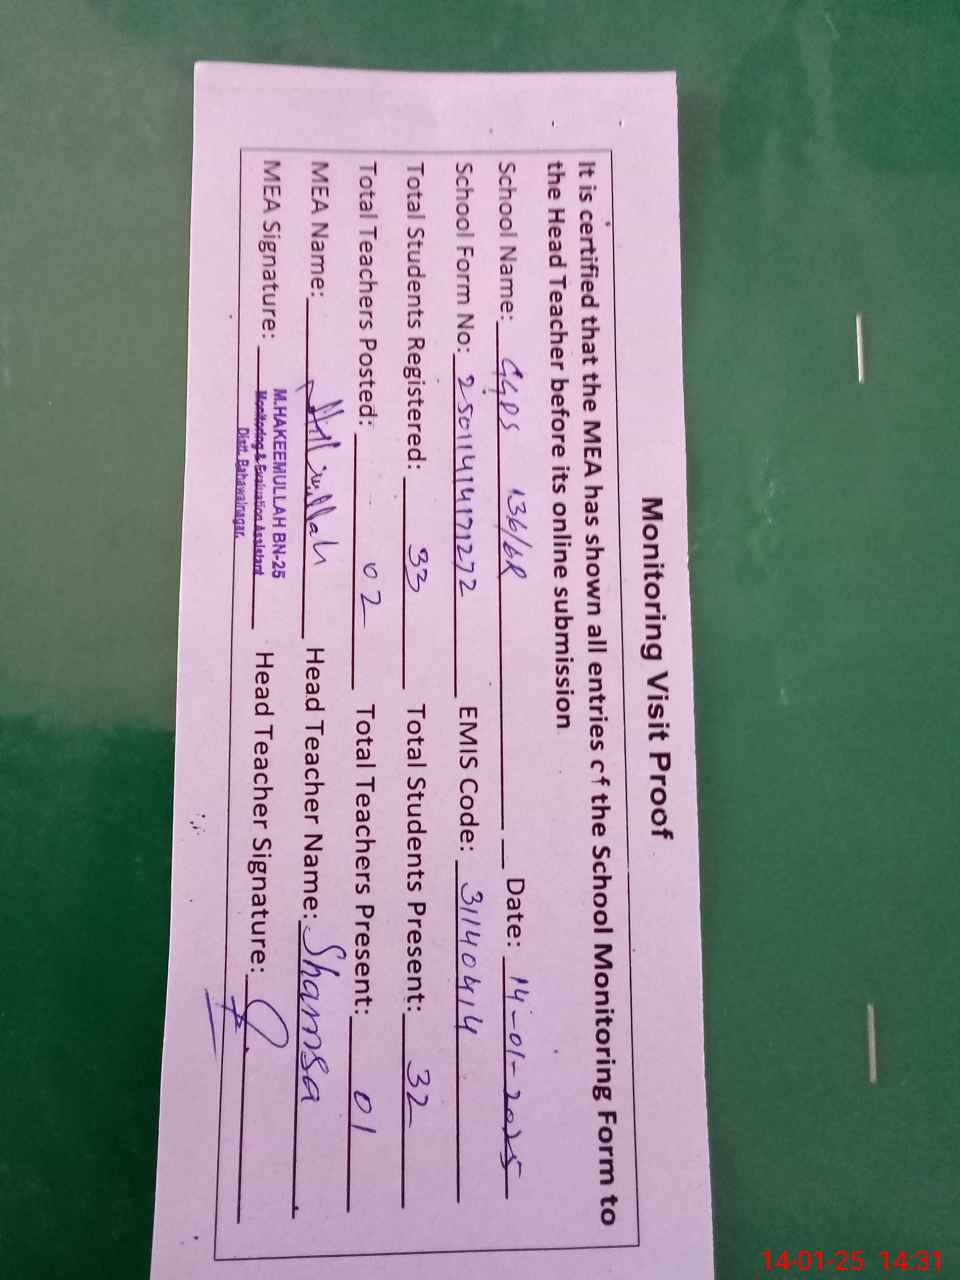 Monitoring Visit Proof
It is certified that the MEA has shown all entries of the School Monitoring Form to
the Head Teacher before its online submission
School Name: GGPS 136/6R Date: 14-01-2025
School Form No: 25011414171272 EMIS Code: 31140414
Total Students Registered: 33 Total Students Present: 32
Total Teachers Posted: 02 Total Teachers Present: 01
MEA Name: Head Teacher Name: Shamsa
MEA Signature: Head Teacher Signature:
M.HAKEEMULLAH BN-25
Monitoring & Evaluation Assistant
Distt. Bahawalnagar.
14-01-25 14:31